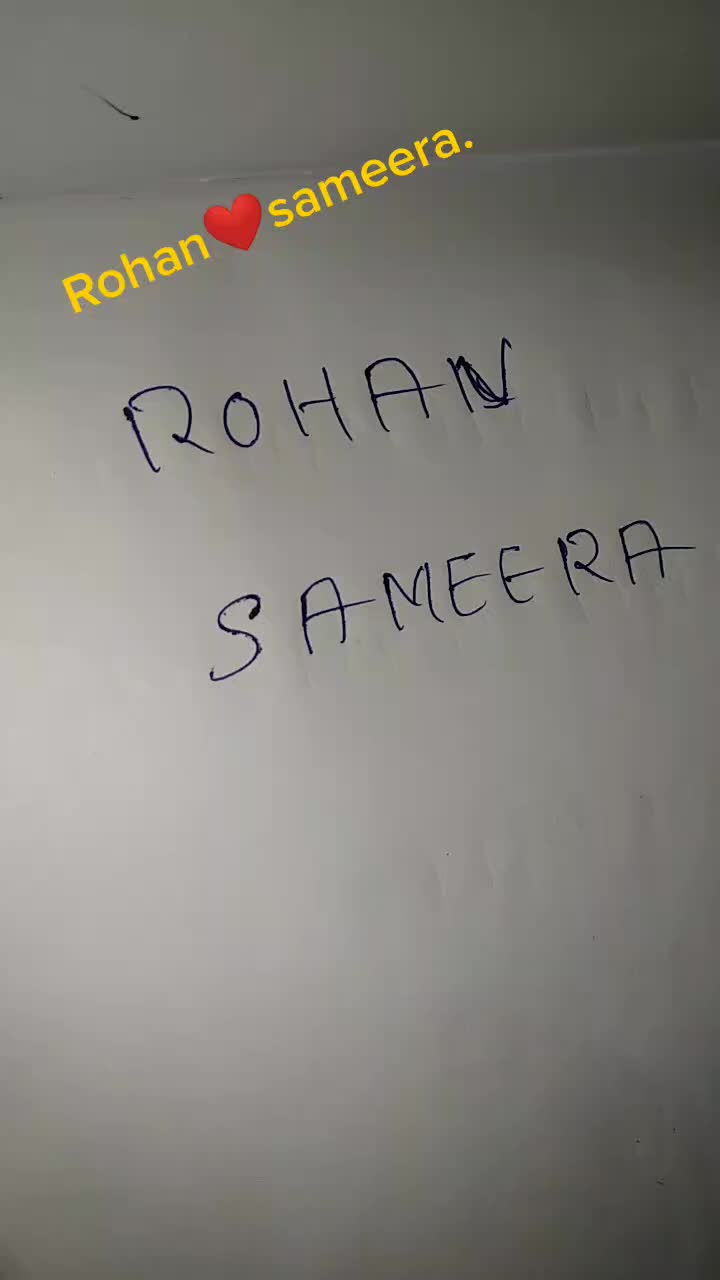 Rohan❤️sameera.
ROHAN
SAMEERA